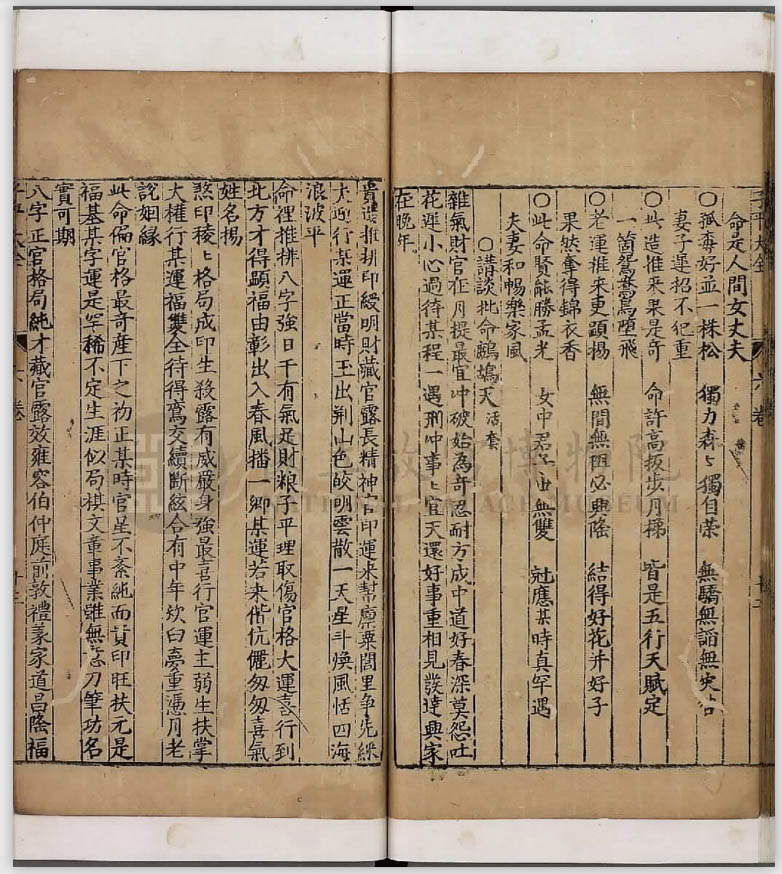 命是人間女丈夫
○孤梅好並一株松　獨力森〻獨自荣　無驕無謟無災咎
妻子遲招不犯重
○此造推来果是奇　命許高扳步月梯　皆是五行天賦定
一箇鴛鴦鴦墮飛
○老運推来更顕揚　無間無阻必興隆　結得好花并好子
果然奪得錦衣香
○此命賢能勝孟光　女中君子世無雙　尅應某時真罕遇
夫妻和暢樂家風
○講談批命鷓鴣天 活套
雜氣財官在月提最宜冲破始為奇忍耐方成中道好春深莫怨吐
花遲小心過待某程一遇刑冲事〻宜天還好事重相見發達興家
在晚年
貴造推排印綬明財藏官露長精神官印運来幇禀粟閭里争先綵
大迎行某運正當時玉出荆山色皎明雲散一天星斗煥風恬四海
浪波平
命裡推排八字強日干有氣足財粮子平理取傷官格大運喜行到
北方才得顕福由彰出入春風播一鄉某運若来偕伉儷匆匆喜氣
姓名揚
煞印稜〻格局成印生殺露有威嚴身強最喜行官運主弱生扶掌
大權行某運福雙全待得鸞交續斷絃合有中年炊臼夢重憑月老
說姻緣
此命偏官格最奇産下之初正某時官星不紊純而貴印旺扶元是
福基某字運是罕稀不定生涯似局棋文章事業雖無意刀筆功名
實可期
八字正官格局純才藏官露效雍容伯仲庭前敦禮義家道昌隆福
子平大全　六卷　十三